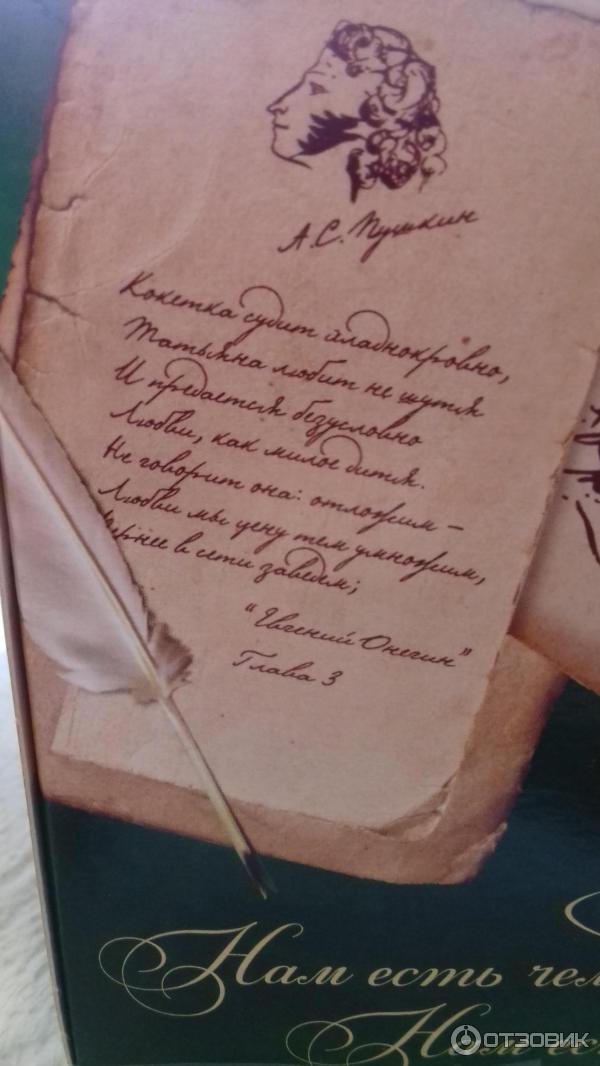 А.С. Пушкин
Кокетка судит хладнокровно,
Татьяна любит не шутя
И предается безусловно
Любви, как милое дитя.
Не говорит она: отложим –
Любви мы цену тем умножим,
Вернее в сети заведем;
"Евгений Онегин"
Глава 3
Нам есть чем
Нам ес
ОТЗОВИК